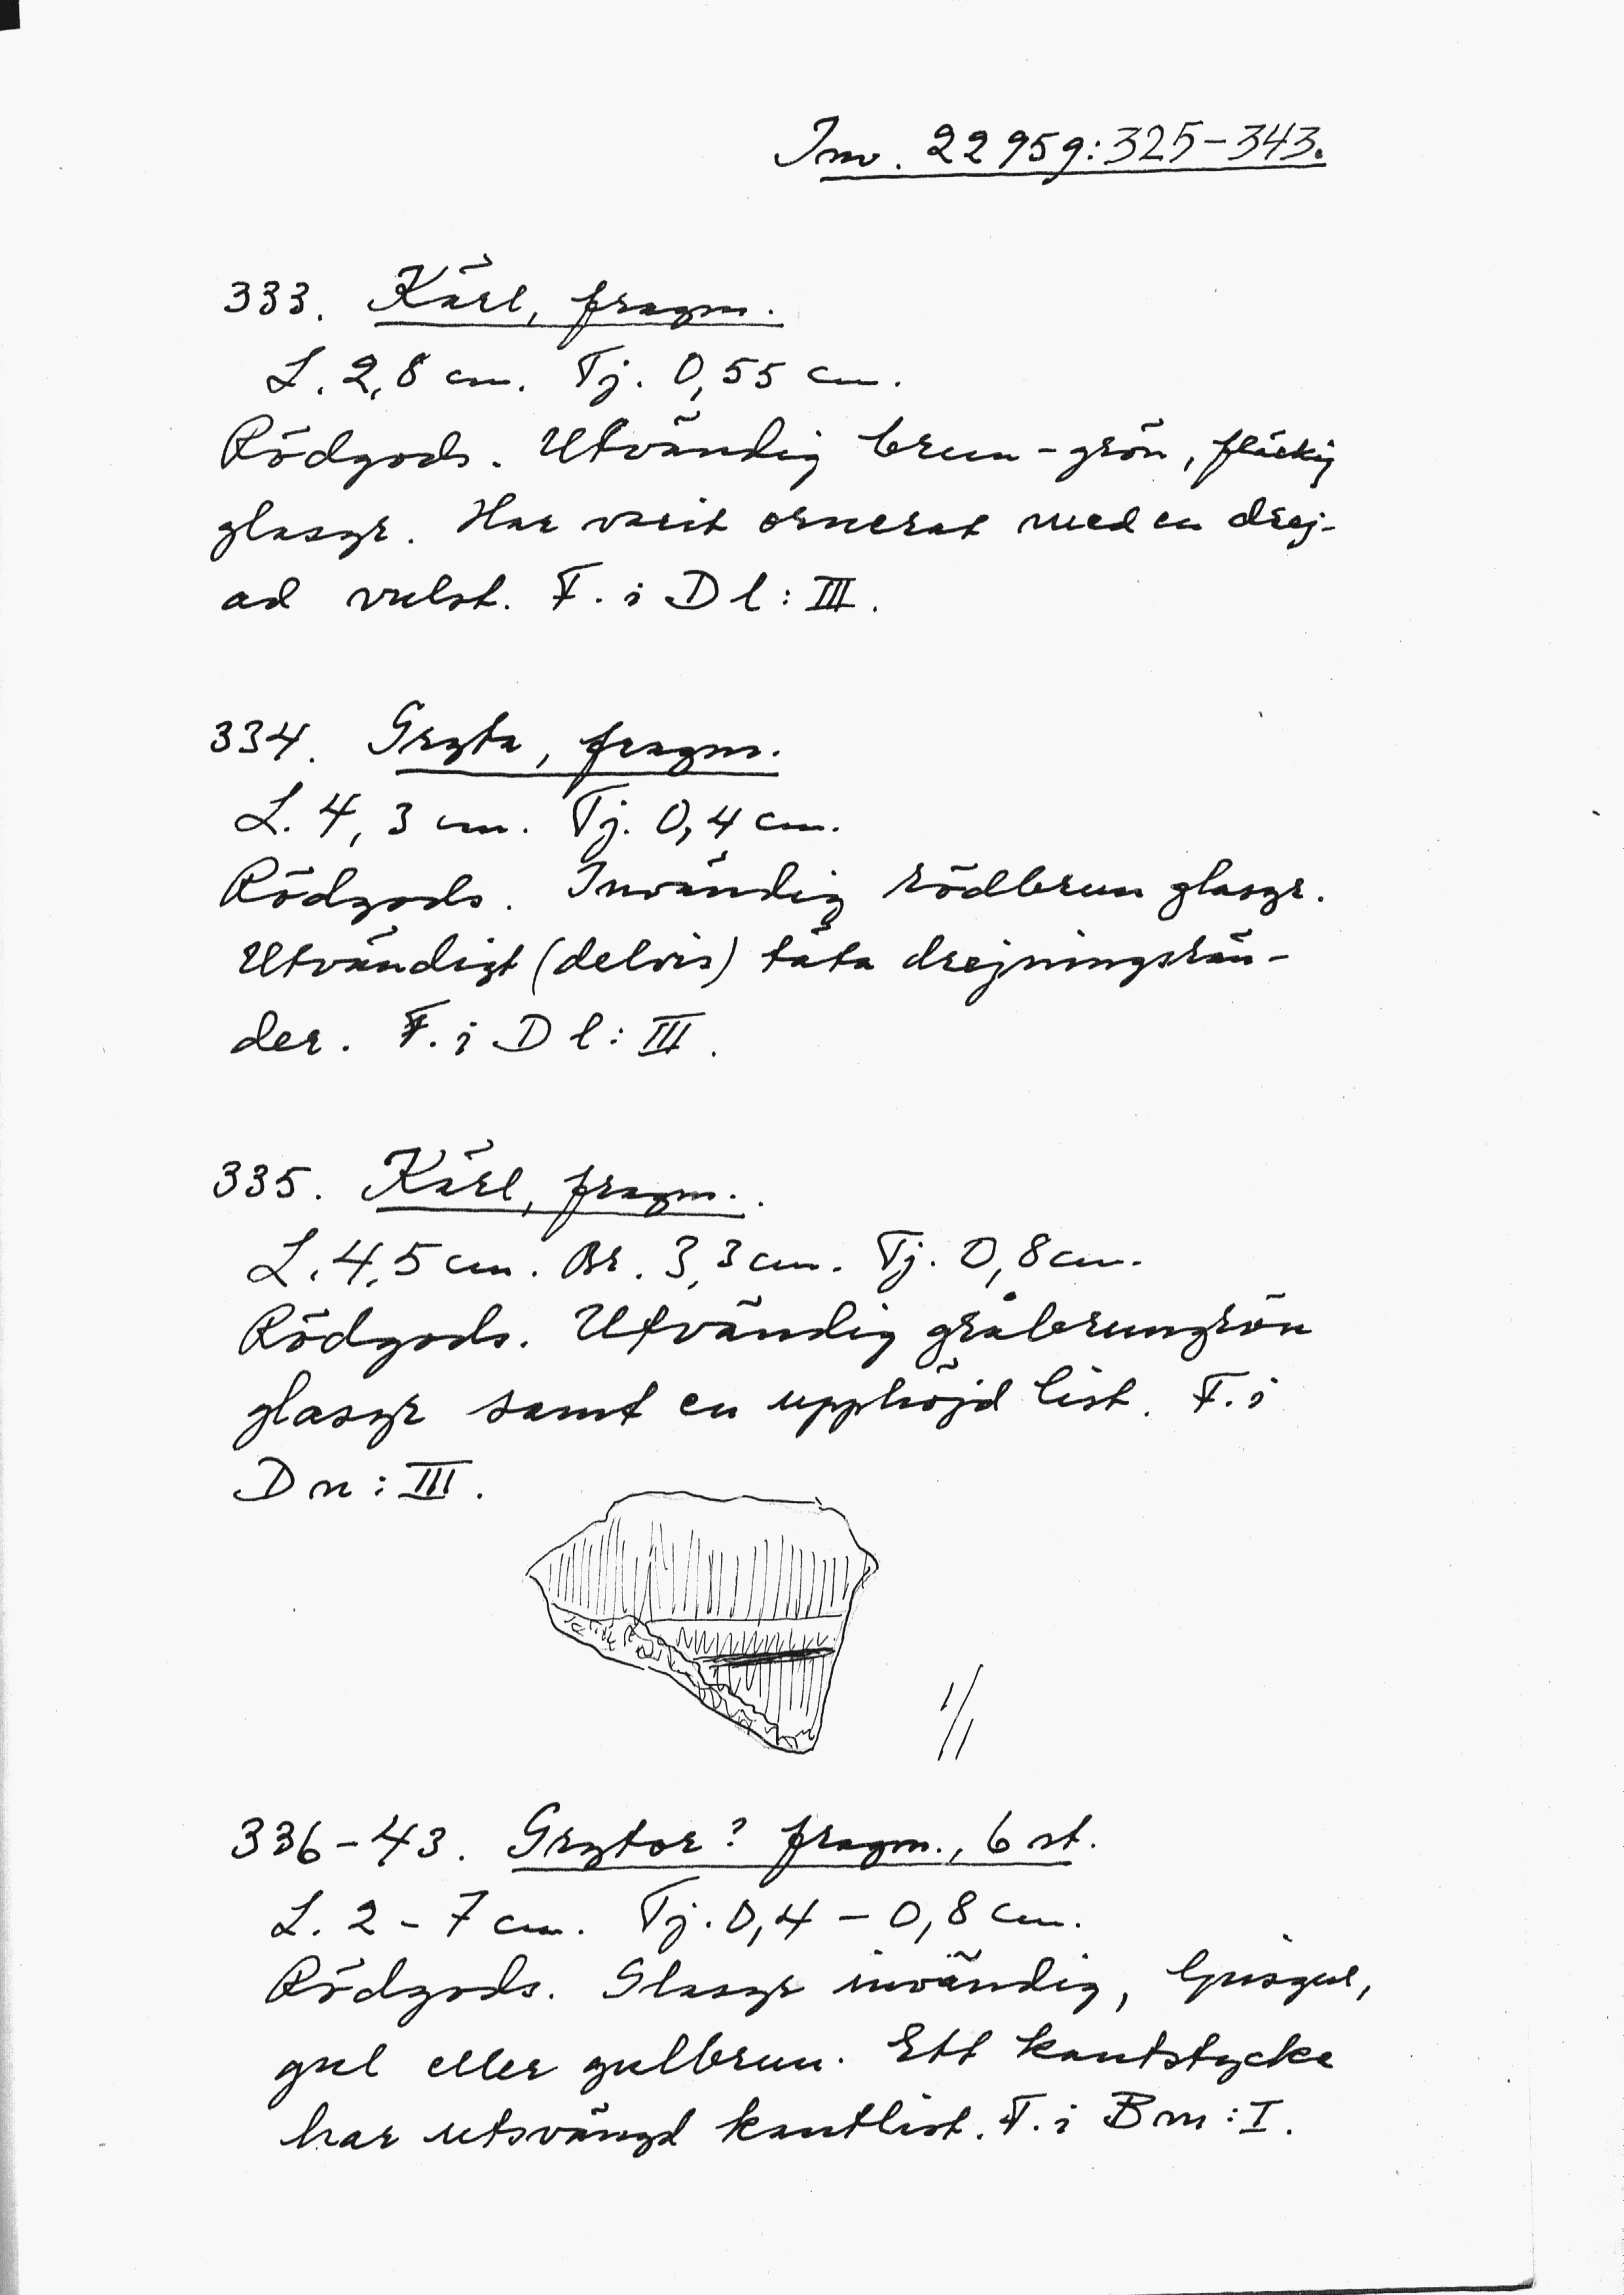 Inv. 22959:325-343.
333. Kärl, fragm.
L. 2,8 cm. Tj. 0,55 cm.
Rödgods. Utvändig brun-grön, fläckig
glasyr. Har varit ornerat med en drej-
ad vulst. F. i Dl:III.
334. Gryta, fragm.
L. 4,3 cm. Tj. 0,4 cm.
Rödgods. Invändig rödbrun glasyr.
Utvändigt (delvis) täta drejningsrän-
der. F. i Dl:III.
335. Kärl, fragm.
L. 4,5 cm. Br. 3,3 cm. Tj. 0,8 cm.
Rödgods. Utvändig gråbrungrön
glasyr samt en upphöjd list. F. i
Dn:III.
1/1
336-43. Grytor? fragm., 6 st.
L. 2-7 cm. Tj. 0,4-0,8 cm.
Rödgods. Glasyr invändig, ljusgul,
gul eller gulbrun. Ett kantstycke
har utsvängd kantlist. F. i Bm:I.